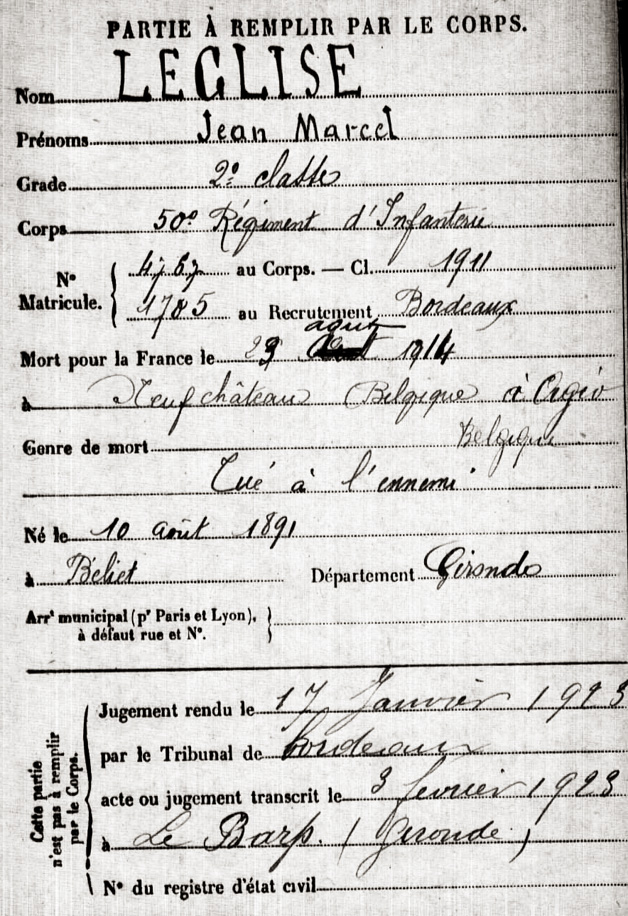 PARTIE À REMPLIR PAR LE CORPS.
Nom LEGLISE
Prénoms Jean Marcel
Grade 2e classe
Corps 50e Régiment d'Infanterie
N° Matricule. { 4767 au Corps. — Cl. 1911
1785 au Recrutement Bordeaux
août
Mort pour la France le 23 1914
à Neufchâteau Belgique à
Belgique
Genre de mort
Tué à l'ennemi
Né le 10 août 1891
à Béliet Département Gironde
Arrt municipal (pr Paris et Lyon), à défaut rue et N°. }
Cette partie n'est pas à remplir par le Corps.
Jugement rendu le 17 Janvier 1923
par le Tribunal de Bordeaux
acte ou jugement transcrit le 3 fevrier 1923
à Le Barp. (Gironde)
N° du registre d'état civil